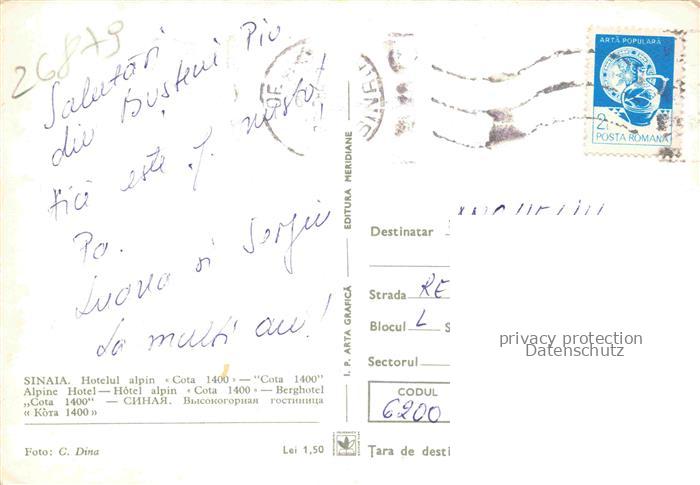 26879
Salutări
din Bușteni
este f. mișto!
Pa.
și Sergiu
La mulți ani!
SINAIA. Hotelul alpin «Cota 1400» — "Cota 1400"
Alpine Hotel — Hôtel alpin «Cota 1400» — Berghotel
„Cota 1400" — СИНАЯ. Высокогорная гостиница
«Кота 1400»
Foto: C. Dina
Lei 1,50
I. P. ARTA GRAFICĂ — EDITURA MERIDIANE
ARTĂ POPULARĂ
2L
POSTA ROMANA
Destinatar
Strada RE
Blocul L S
Sectorul
CODUL
6200
Țara de desti
privacy protection
Datenschutz